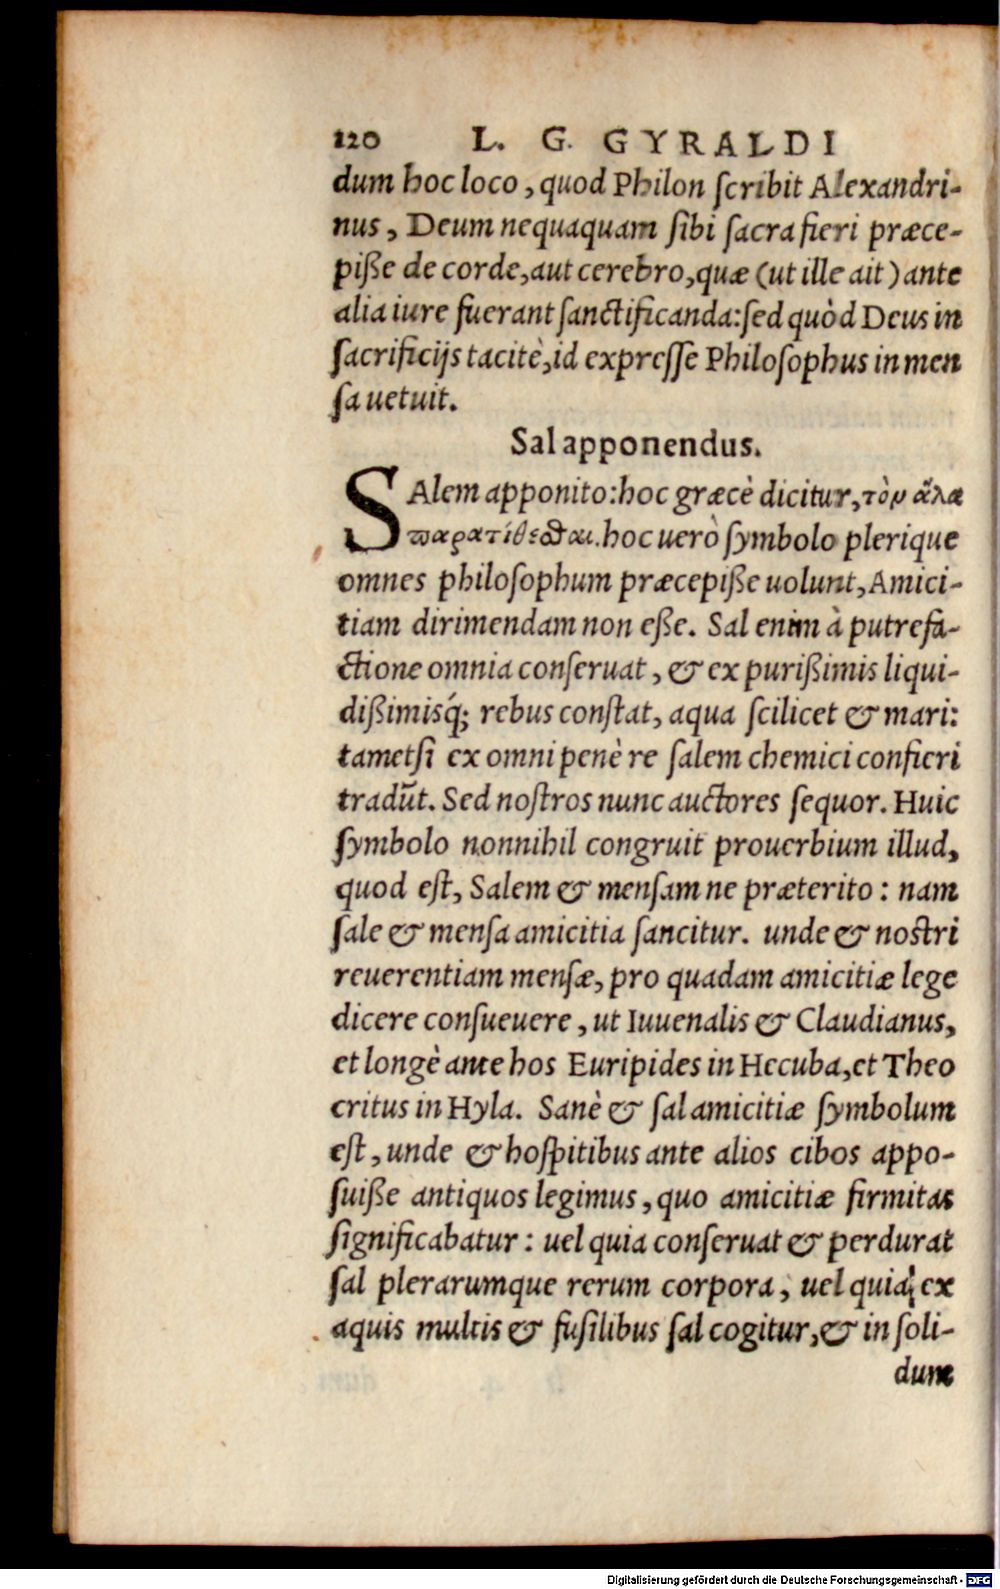 120 L. G. GYRALDI
dum hoc loco, quod Philon ſcribit Alexandri-
nus, Deum nequaquam ſibi ſacra fieri præce-
piße de corde, aut cerebro, quæ (ut ille ait) ante
alia iure fuerant ſanctificanda: ſed quòd Deus in
ſacrificijs tacitè, id expreſſe Philoſophus in men
ſa uetuit.
Sal apponendus.
SAlem apponito: hoc græcè dicitur, τὸν ἅλα
παρατίθεσθαι. hoc uerò ſymbolo plerique
omnes philoſophum præcepiße uolunt, Amici-
tiam dirimendam non eße. Sal enim à putrefa-
ctione omnia conſeruat, & ex purißimis liqui-
dißimisq́; rebus conſtat, aqua ſcilicet & mari:
tametſi ex omni penè re ſalem chemici confieri
tradũt. Sed noſtros nunc auctores ſequor. Huic
ſymbolo nonnihil congruit prouerbium illud,
quod eſt, Salem & menſam ne præterito: nam
ſale & menſa amicitia ſancitur. unde & noſtri
reuerentiam menſæ, pro quadam amicitiæ lege
dicere conſueuere, ut Iuuenalis & Claudianus,
et longè ante hos Euripides in Hecuba, et Theo
critus in Hyla. Sanè & ſal amicitiæ ſymbolum
eſt, unde & hoſpitibus ante alios cibos appo-
ſuiße antiquos legimus, quo amicitiæ firmitas
ſignificabatur: uel quia conſeruat & perdurat
ſal plerarumque rerum corpora, uel quia ex
aquis multis & fuſilibus ſal cogitur, & in ſoli-
dum
Digitalisierung gefördert durch die Deutsche Forschungsgemeinschaft - DFG